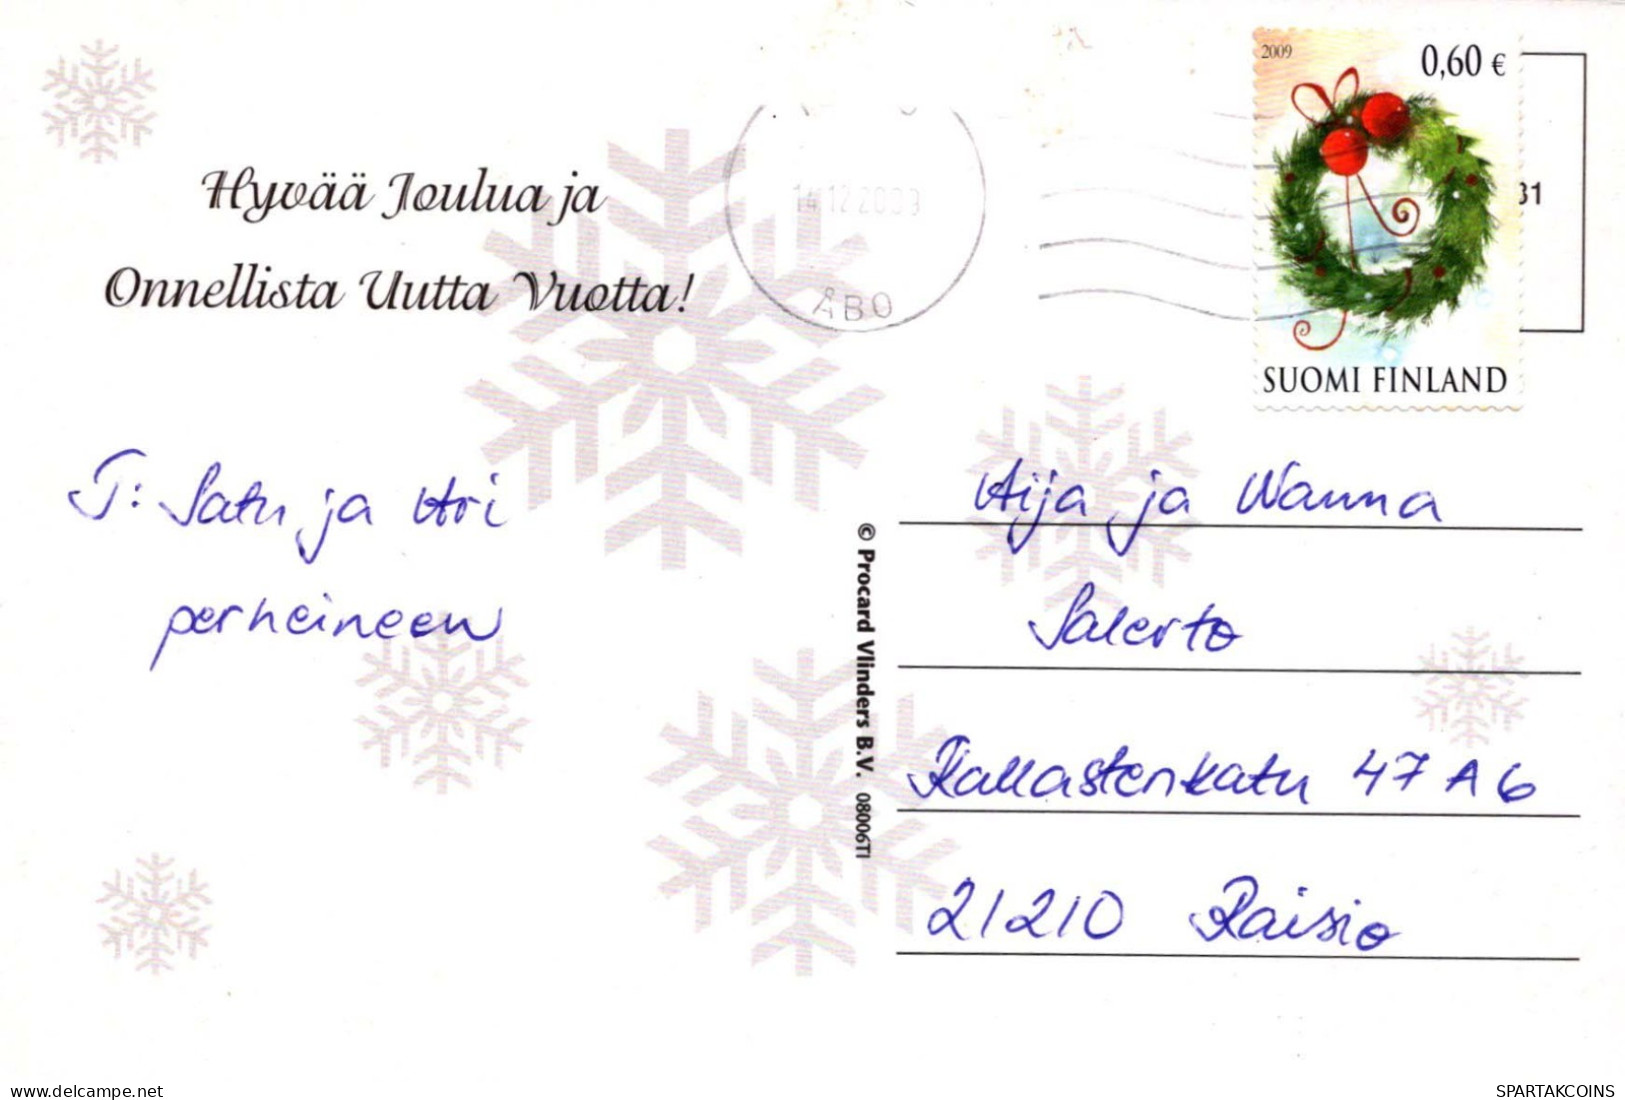 Hyvää Joulua ja
Onnellista Uutta Vuotta!
T: Satu ja Ari
perheineen
© Procard Vlinders B.V. 08006TI
14.12.2009
ÅBO
2009
0,60 €
SUOMI FINLAND
31
Aija ja Nanna
Salerto
Kallastenkatu 47 A 6
21210 Raisio
delcampe.net
SPARTAKCOINS